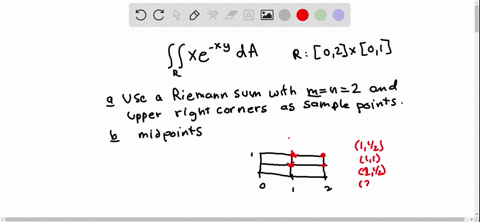 ∬ xe^{-xy} dA R: [0,2]×[0,1]
R
a Use a Riemann sum with m=n=2 and
upper right corners as sample points.
b midpoints
1
0 1 2
(1,1/2)
(1,1)
(2,1/2)
(2